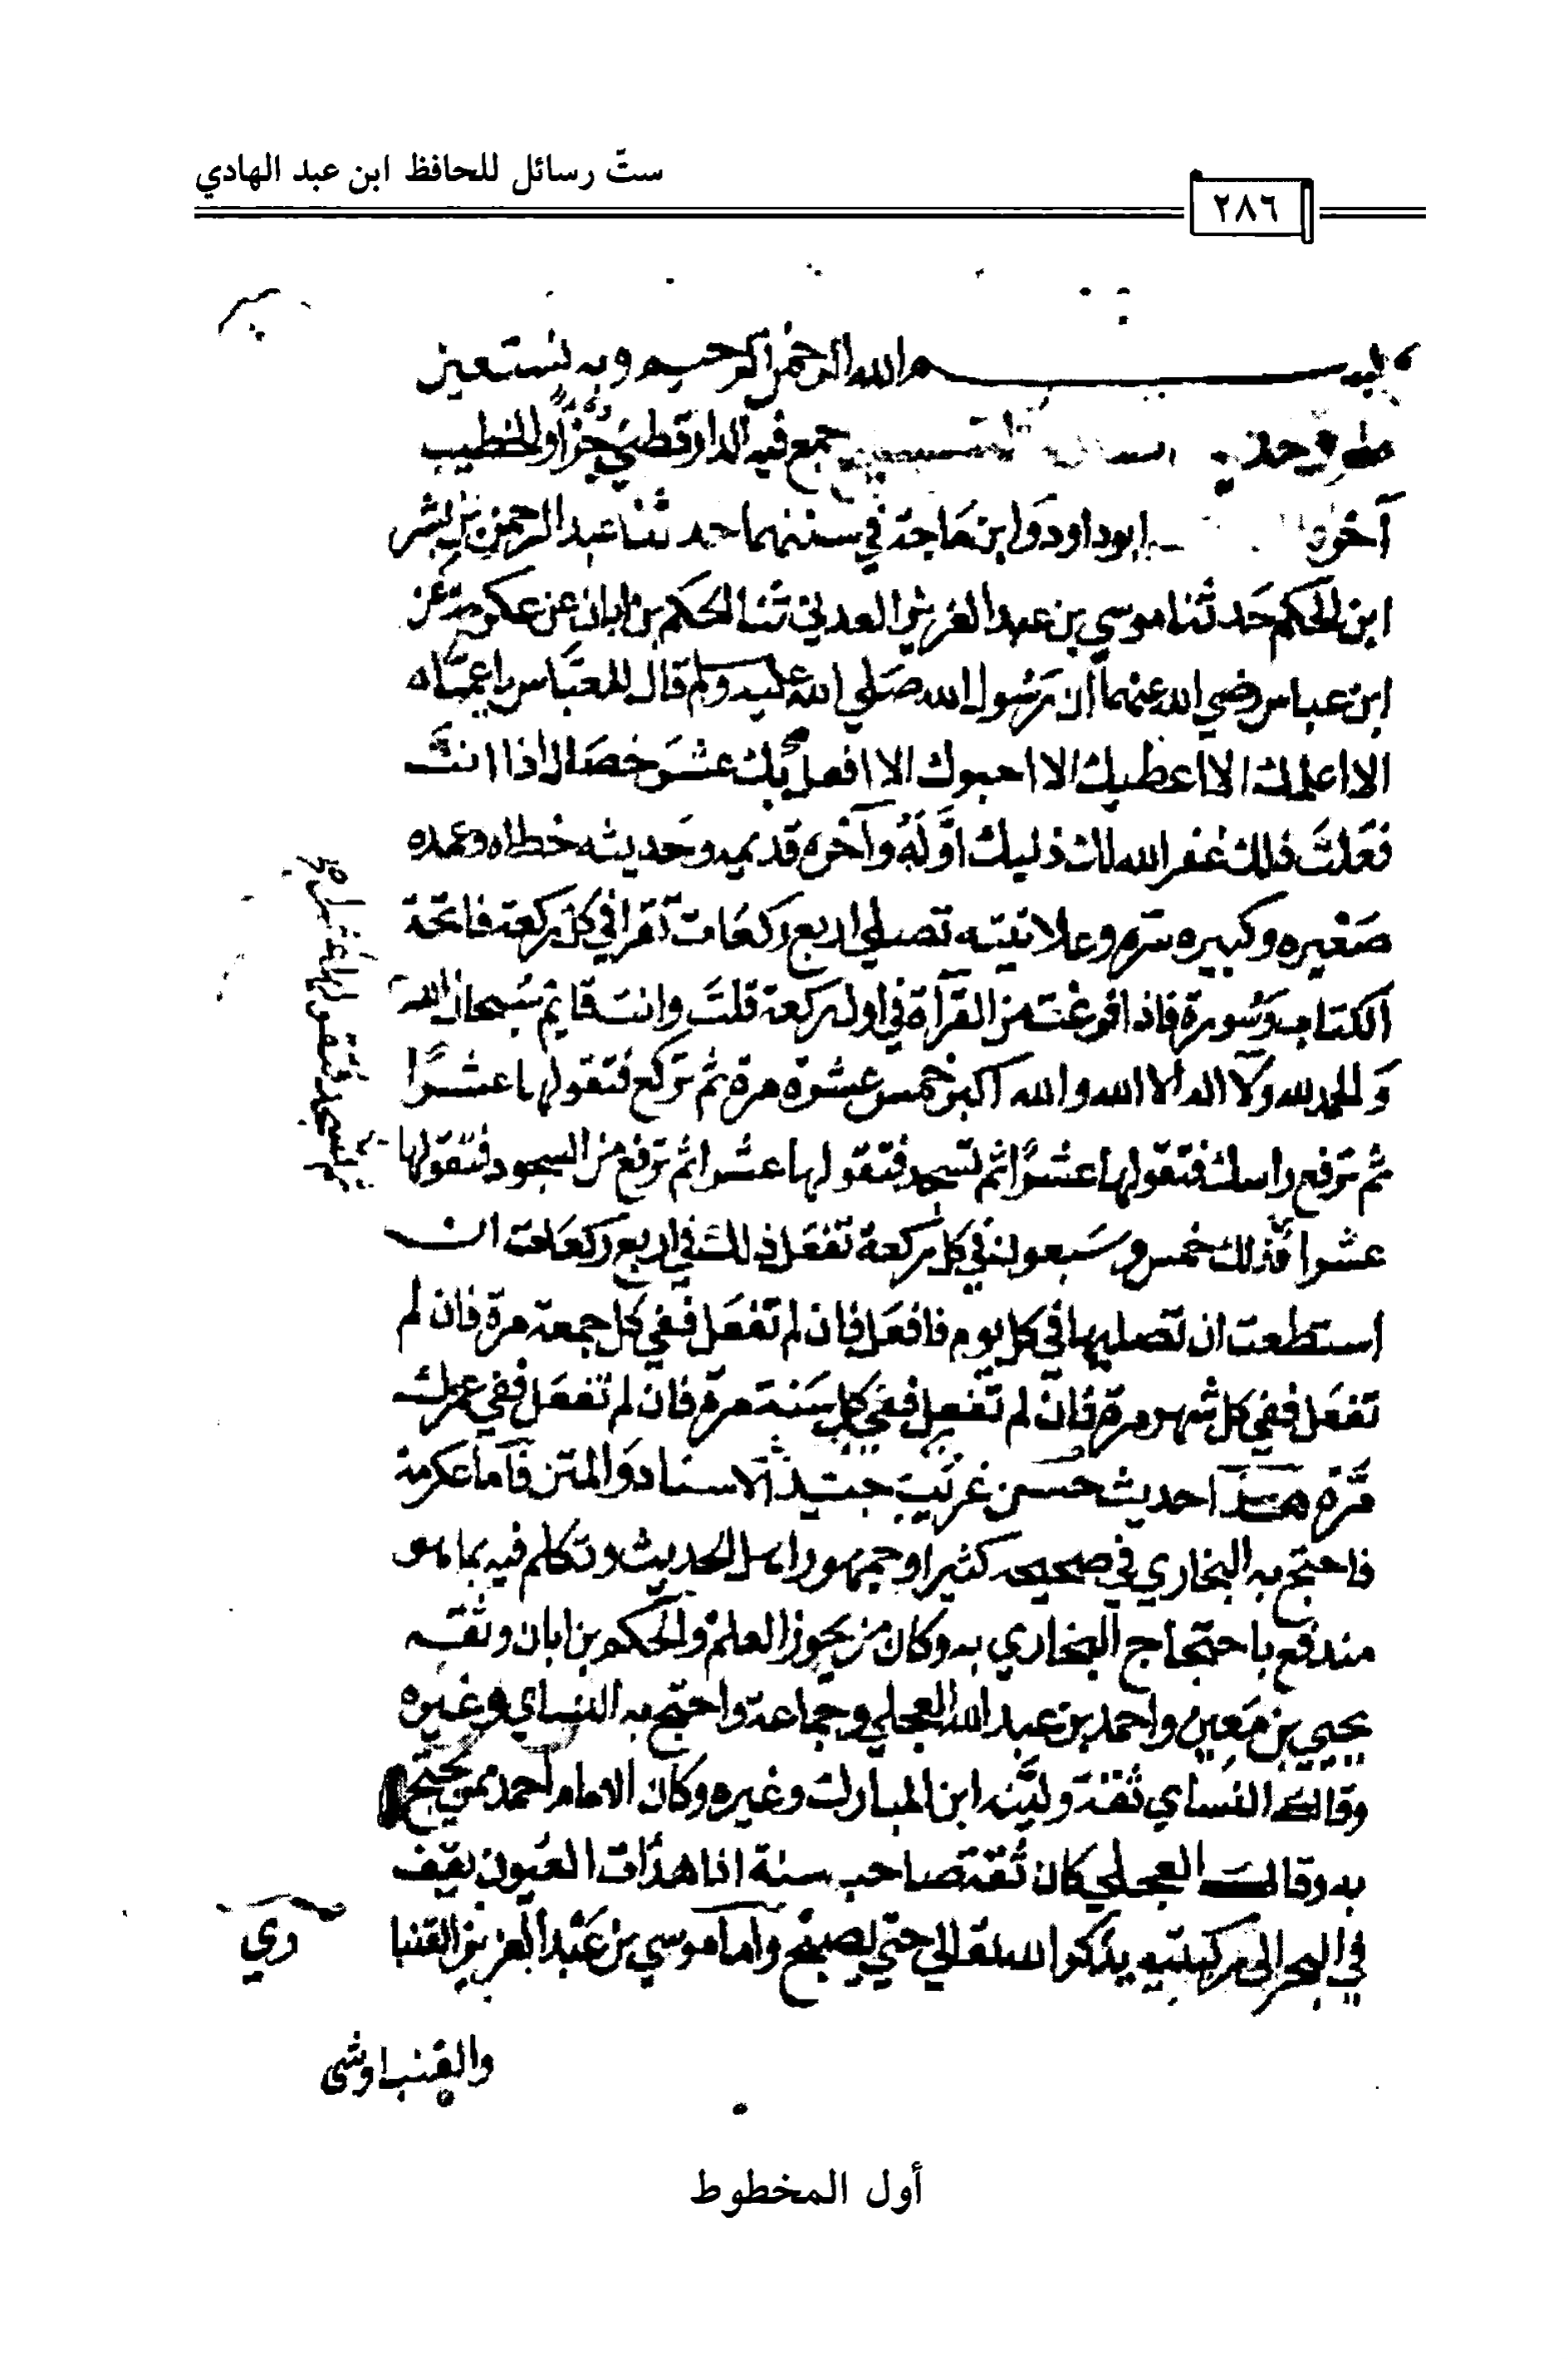 ستّ رسائل للحافظ ابن عبد الهادي
٢٨٦
بسم الله الرحمن الرحيم وبه نستعين
جمع فيه الدارقطني جزأ والخطيب
آخر ابو داود وابن ماجة في سننهما حدثنا عبد الرحمن بن بشر
ابن الحكم حدثنا موسي بن عبد العزيز العدني ثنا الحكم بن ابان عن عكرمة عن
ابن عباس رضي الله عنهما ان رسول الله صلي الله عليه وسلم قال للعباس يا عماه
الا اعلمك الا اعطيك الا احبوك الا افعل بك عشر خصال اذا انت
فعلت ذلك غفر الله لك ذنبك اوله وآخره قديمه وحديثه خطاه وعمده
صغيره وكبيره سره وعلانيته تصلي اربع ركعات تقرا في كل ركعة فاتحة
الكتاب وسورة فاذا فرغت من القرآة في اول ركعة قلت وانت قايم سبحان الله
والحمد لله ولا اله الا الله والله اكبر خمس عشرة مرة ثم تركع فتقولها عشرا
ثم ترفع راسك فتقولها عشرا ثم تسجد فتقولها عشرا ثم ترفع من السجود فتقولها
عشرا فذلك خمس وسبعون في كل ركعة تفعل ذلك في اربع ركعات ان
استطعت ان تصليها في كل يوم فافعل فان لم تفعل ففي كل جمعة مرة فان لم
تفعل ففي كل شهر مرة فان لم تفعل ففي كل سنة مرة فان لم تفعل ففي عمرك
مرة هذا حديث حسن غريب جيد الاسناد والمتن فاما عكرمة
فاحتج به البخاري في صحيحه كثيرا وجمهور اهل الحديث وتكلم فيه بما هو
مندفع باحتجاج البخاري به وكان من بحور العلم والحكم بن ابان وثقه
يحيي بن معين واحمد بن عبد الله العجلي وجماعة واحتج به النساي وغيره
وقال النساي ثقة ولينه ابن المبارك وغيره وكان الامام احمد ممن يحتج
به وقال العجلي كان ثقة صاحب سنة اذا هدات العيون يقف
في البحر الى ركبتيه يذكر الله تعالي حتي يصبح واما موسي بن عبد العزيز القنبا
ري
والقنب
أول المخطوط